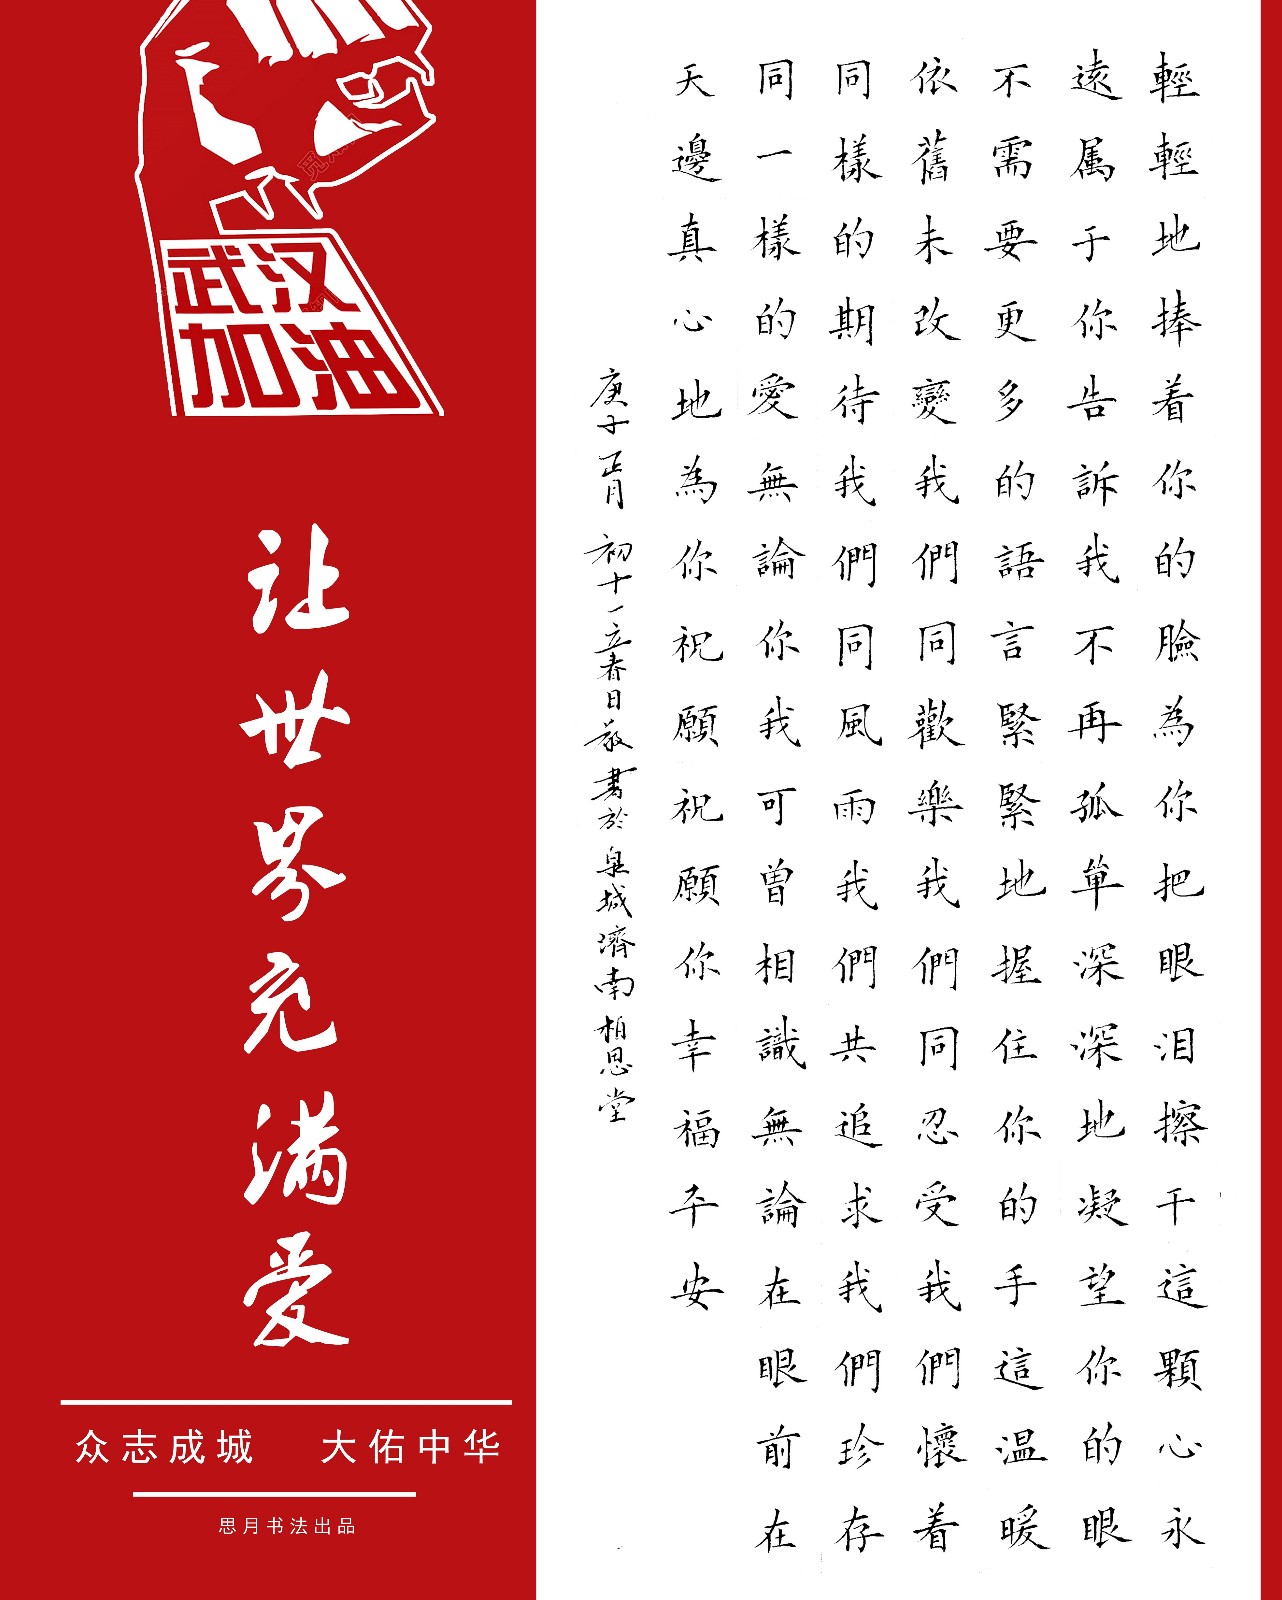 武汉
加油
让世界充满爱
众志成城 大佑中华
思月书法出品
輕輕地捧着你的臉為你把眼泪擦干這顆心永
遠属于你告訴我不再孤單深深地凝望你的眼
不需要更多的語言緊緊地握住你的手這温暖
依舊未改變我們同歡樂我們同忍受我們懷着
同樣的期待我們同風雨我們共追求我們珍存
同一樣的愛無論你我可曾相識無論在眼前在
天邊真心地為你祝願祝願你幸福平安
庚子正月初十一立春日敬書於泉城濟南相思堂